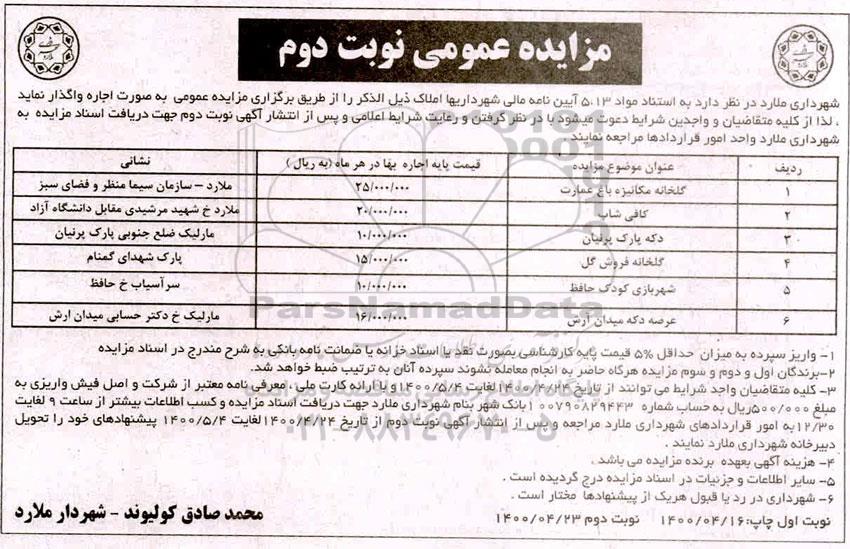 مزایده عمومی نوبت دوم
شهرداری ملارد در نظر دارد به استناد مواد ۵،۱۳ آیین نامه مالی شهرداریها املاک ذیل الذکر را از طریق برگزاری مزایده عمومی به صورت اجاره واگذار نماید
، لذا از کلیه متقاضیان و واجدین شرایط دعوت میشود با در نظر گرفتن و رعایت شرایط اعلامی و پس از انتشار آگهی نوبت دوم جهت دریافت اسناد مزایده به
شهرداری ملارد واحد امور قراردادها مراجعه نمایند.
ردیف عنوان موضوع مزایده قیمت پایه اجاره بها در هر ماه (به ریال) نشانی
۱ گلخانه مکانیزه باغ عمارت ۲۵/۰۰۰/۰۰۰ ملارد – سازمان سیما منظر و فضای سبز
۲ کافی شاپ ۲۰/۰۰۰/۰۰۰ ملارد خ شهید مرشیدی مقابل دانشگاه آزاد
۳ دکه پارک پرنیان ۱۰/۰۰۰/۰۰۰ مارلیک ضلع جنوبی پارک پرنیان
۴ گلخانه فروش گل ۱۵/۰۰۰/۰۰۰ پارک شهدای گمنام
۵ شهربازی کودک حافظ ۱۰/۰۰۰/۰۰۰ سرآسیاب خ حافظ
۶ عرصه دکه میدان ارش ۱۶/۰۰۰/۰۰۰ مارلیک خ دکتر حسابی میدان ارش
ParsNamadData
۱- واریز سپرده به میزان حداقل ۵% قیمت پایه کارشناسی بصورت نقد یا اسناد خزانه یا ضمانت نامه بانکی به شرح مندرج در اسناد مزایده
۲-برندگان اول و دوم و سوم مزایده هرگاه حاضر به انجام معامله نشوند سپرده آنان به ترتیب ضبط خواهد شد.
۳- کلیه متقاضیان واجد شرایط می توانند از تاریخ ۱۴۰۰/۴/۲۴ لغایت ۱۴۰۰/۵/۴ و با ارائه کارت ملی ، معرفی نامه معتبر از شرکت و اصل فیش واریزی به
مبلغ ۵۰۰/۰۰۰ریال به حساب شماره ۱۰۰۷۹۰۸۲۹۴۴۳ بانک شهر بنام شهرداری ملارد جهت دریافت اسناد مزایده و کسب اطلاعات بیشتر از ساعت ۹ لغایت
۱۲/۳۰به امور قراردادهای شهرداری ملارد مراجعه و پس از انتشار آگهی نوبت دوم از تاریخ ۱۴۰۰/۴/۲۴ لغایت ۱۴۰۰/۵/۴ پیشنهادهای خود را تحویل
دبیرخانه شهرداری ملارد نمایند .
۰۲۱-۸۸۳۴۹۶۷۰-۵
۴- هزینه آگهی بعهده برنده مزایده می باشد .
۵- سایر اطلاعات و جزئیات در اسناد مزایده درج گردیده است .
۶- شهرداری در رد یا قبول هریک از پیشنهادها مختار است .
نوبت اول چاپ: ۱۴۰۰/۰۴/۱۶ نوبت دوم ۱۴۰۰/۰۴/۲۳
محمد صادق کولیوند - شهردار ملارد